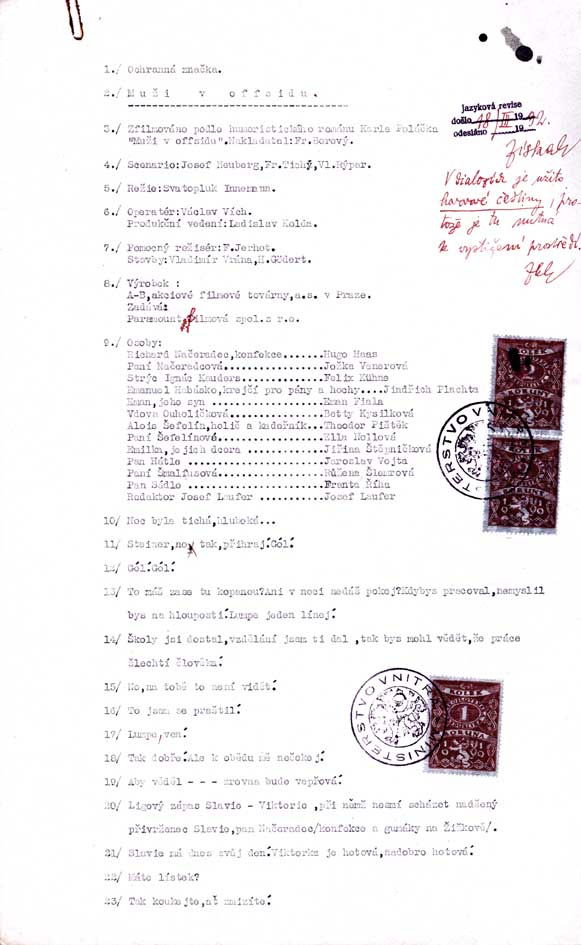 1./ Ochranná značka.
2./ M u ž i   v   o f f s i d u .
jazyková revise
došlo 18/III 1932.
odesláno 19
3./ Zfilmováno podle humoristického románu Karla Poláčka
"Muži v offsidu".Nakladatel:Fr.Borový.
V dialozích je užito
hovorové češtiny, pro-
tože je tu nutná
k vystižení prostředí.
4./ Scenario:Josef Neuberg,Fr.Tichý,Vl.Rýpar.
5./ Režie:Svatopluk Innemann.
6./ Operatér:Václav Vích.
Produkční vedení:Ladislav Kolda.
7./ Pomocný režisér:F.Jerhot.
Stavby:Vladimír Vrána,H.Gödert.
8./ Výrobek :
A-B,akciové filmové továrny,a.s. v Praze.
Zadává:
Paramount filmová spol.s r.o.
9./ Osoby:
Richard Načeradec,konfekce.......Hugo Haas
Paní Načeradcová..............Joška Vanerová
Strýc Ignác Kauders...............Felix Kühne
Emanuel Habásko,krejčí pro pány a hochy....Jindřich Plachta
Eman,jeho syn ................Eman Fiala
Vdova Ouholičková.............Betty Kysilková
Alois Šefelín,holič a kadeřník...Theodor Pištěk
Paní Šefelínová................Ella Nollová
Emilka,jejich dcera ...........Jiřina Štěpničková
Pan Hátle .....................Jaroslav Vojta
Paní Šmalfusová................Růžena Šlemrová
Pan Sádlo .....................Franta Říha
Redaktor Josef Laufer .........Josef Laufer
KOLEK
KORUNA
MINISTERSTVO VNITRA
10/ Noc byla tichá,hluboká...
11/ Steiner,no tak,přihraj!Gól!
12/ Gól!Gól!
13/ To máš zase tu kopanou?Ani v noci nedáš pokoj?Kdybys pracoval,nemyslil
bys na hlouposti!Lumpe jeden línej!
14/ Školy jsi dostal,vzdělání jsem ti dal ,tak bys mohl vědět,že práce
šlechtí člověka!
15/ No,na tobě to není vidět!
16/ To jsem se praštil!
17/ Lumpe,ven!
18/ Tak dobře!Ale k obědu mě nečekej!
19/ Aby věděl - - - zrovna bude vepřová!
MINISTERSTVO VNITRA
KOLEK
1
KORUNA
20/ Ligový zápas Slavie - Viktorie ,při němž nesmí scházet nadšený
přívrženec Slavie,pan Načeradec/konfekce a gumáky na Žižkově/.
21/ Slavie má dnes svůj den!Viktorka je hotová,nadobro hotová!
22/ Máte lístek?
23/ Tak koukejte,ať zmizíte!